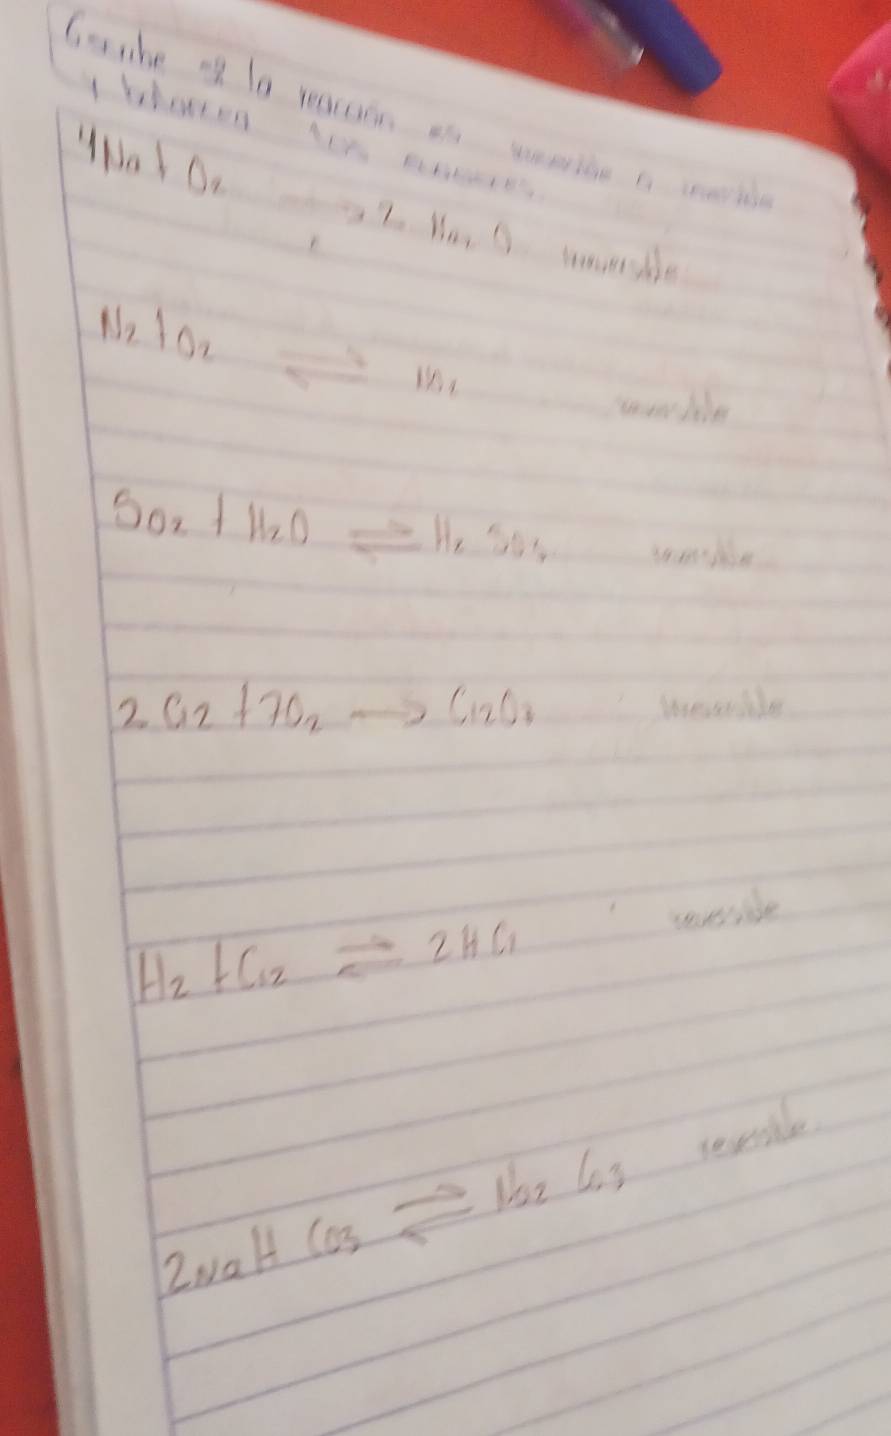 Escribe si la reacción es reversible o irreversible
y balancea las
4Na + O2 → 2 Na2 O irreversible
N2 + O2 ⇌ NO2 reversible
SO2 + H2O ⇌ H2 SO3 reversible
2 Cl2 + 7O2 → Cl2O7 irreversible
H2 + Cl2 ⇌ 2 H Cl reversible
2NaH CO3 ⇌ Na2 CO3 reversible